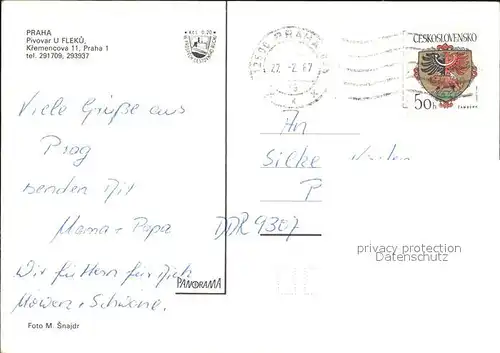 PRAHA
Pivovar U FLEKŮ,
Křemencova 11, Praha 1
tel. 291709, 293937
Kčs 0,20
Viele Grüße aus
Prag
senden Dir
Mama + Papa
Wir füttern für Dich
Möwen + Schwäne.
PANORAMA
Foto M. Šnajdr
PRAHA
27.-2.87
ČESKOSLOVENSKO
50h
An
Silke
P
DDR 9307
privacy protection
Datenschutz